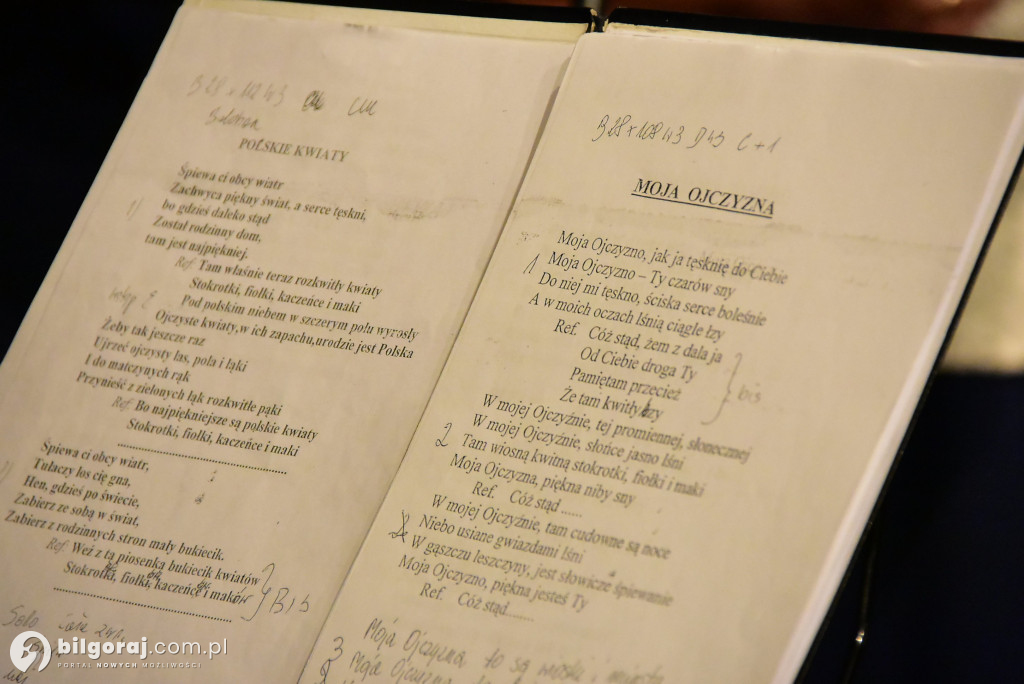 B28 x 112 W3 CM
POLSKIE KWIATY
Śpiewa ci obcy wiatr
Zachwyca piękny świat, a serce tęskni,
bo gdzieś daleko stąd
1)
Został rodzinny dom,
tam jest najpiękniej.
Ref. Tam właśnie teraz rozkwitły kwiaty
Stokrotki, fiołki, kaczeńce i maki
Pod polskim niebem w szczerym polu wyrosły
Ojczyste kwiaty,w ich zapachu,urodzie jest Polska
Żeby tak jeszcze raz
Ujrzeć ojczysty las, pola i łąki
I do matczynych rąk
Przynieść z zielonych łąk rozkwitłe pąki
Ref. Bo najpiękniejsze są polskie kwiaty
Stokrotki, fiołki, kaczeńce i maki
Śpiewa ci obcy wiatr,
Tułaczy los cię gna,
Hen, gdzieś po świecie,
Zabierz ze sobą w świat,
Zabierz z rodzinnych stron mały bukiecik.
Ref. Weź z tą piosenką bukiecik kwiatów
Stokrotki, fiołki, kaczeńce i maków
Bis
Solo
bilgoraj.com.pl
PORTAL NOWYCH MOŻLIWOŚCI
B28 x 108 W3 D43 C+1
MOJA OJCZYZNA
Moja Ojczyzno, jak ja tęsknię do Ciebie
1 Moja Ojczyzno – Ty czarów sny
Do niej mi tęskno, ściska serce boleśnie
A w moich oczach lśnią ciągle łzy
Ref. Cóż stąd, żem z dala ja
Od Ciebie droga Ty
Pamiętam przecież
Że tam kwitły bzy
bis
W mojej Ojczyźnie, tej promiennej, słonecznej
W mojej Ojczyźnie, słońce jasno lśni
2 Tam wiosną kwitną stokrotki, fiołki i maki
Moja Ojczyzna, piękna niby sny
Ref. Cóż stąd ......
W mojej Ojczyźnie, tam cudowne są noce
Niebo usiane gwiazdami lśni
W gąszczu leszczyny, jest słowicze śpiewanie
Moja Ojczyzno, piękna jesteś Ty
Ref. Cóż stąd........
Moja Ojczyzna to są wioski i miasta
3 Moja Ojczyzna